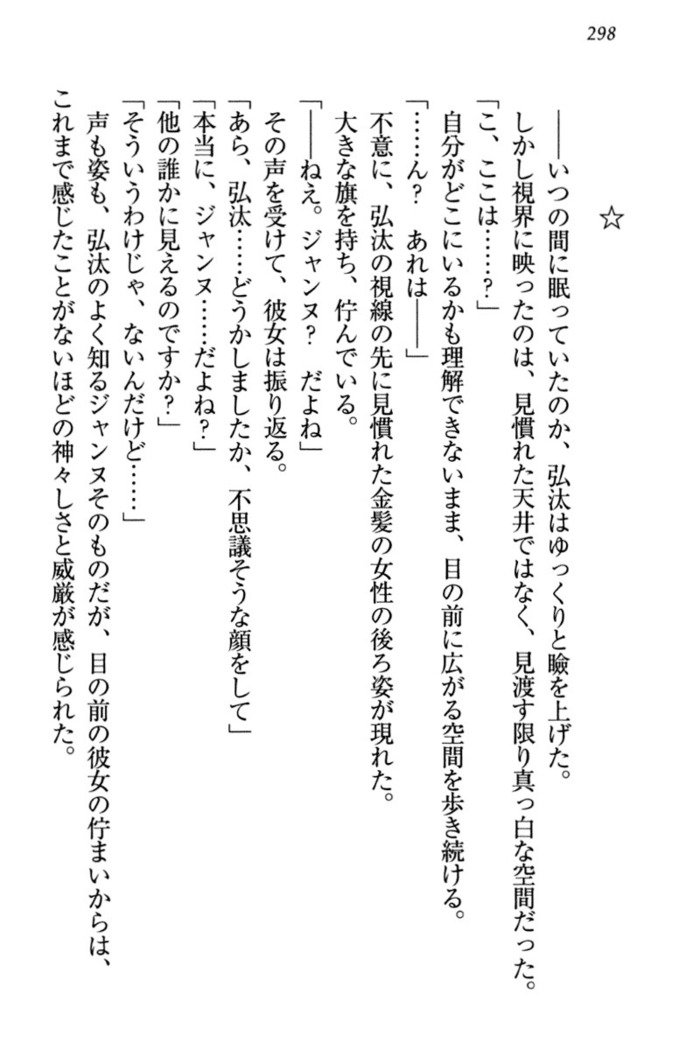 298
☆
――いつの間に眠っていたのか、弘汰はゆっくりと瞼を上げた。
しかし視界に映ったのは、見慣れた天井ではなく、見渡す限り真っ白な空間だった。
「こ、ここは……？」
自分がどこにいるかも理解できないまま、目の前に広がる空間を歩き続ける。
「……ん？　あれは――」
不意に、弘汰の視線の先に見慣れた金髪の女性の後ろ姿が現れた。
大きな旗を持ち、佇んでいる。
「――ねえ。ジャンヌ？　だよね」
その声を受けて、彼女は振り返る。
「あら、弘汰……どうかしましたか、不思議そうな顔をして」
「本当に、ジャンヌ……だよね？」
「他の誰かに見えるのですか？」
「そういうわけじゃ、ないんだけど……」
声も姿も、弘汰のよく知るジャンヌそのものだが、目の前の彼女の佇まいからは、
これまで感じたことがないほどの神々しさと威厳が感じられた。